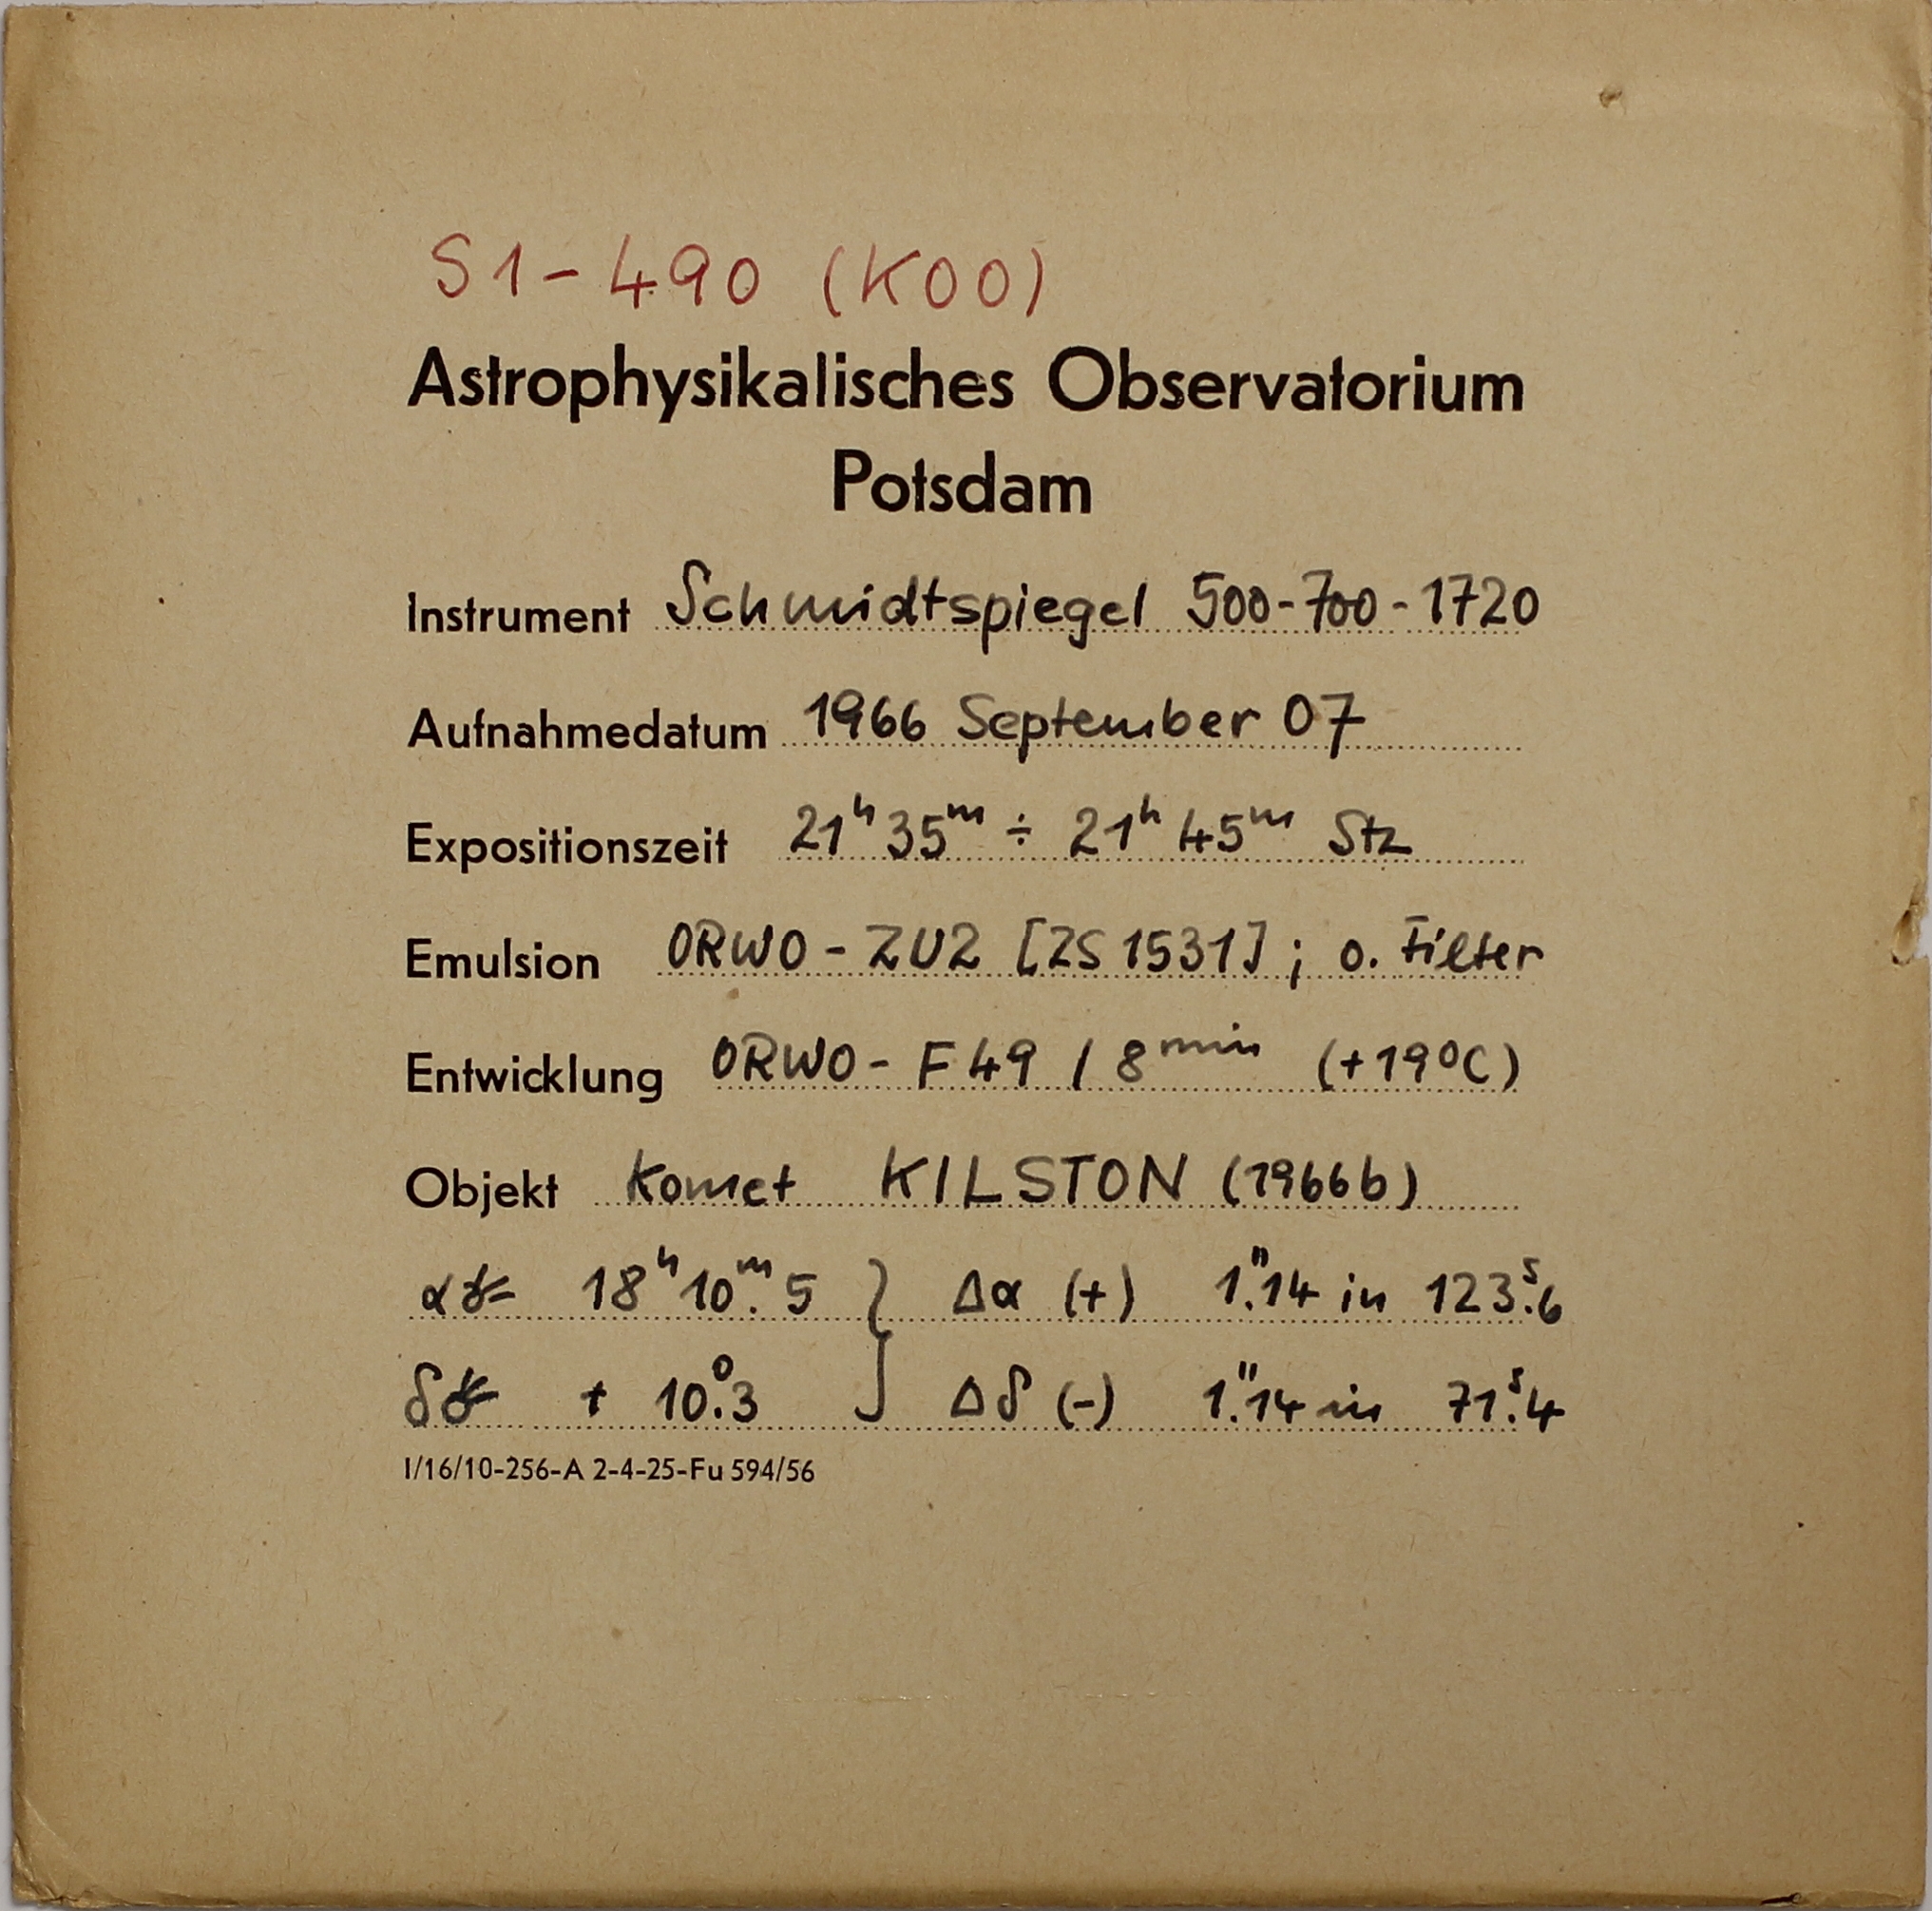 S1-490 (K00)
Astrophysikalisches Observatorium
Potsdam
Instrument Schmidtspiegel 500-700-1720
Aufnahmedatum 1966 September 07
Expositionszeit 21ʰ35ᵐ ÷ 21ʰ45ᵐ Stz
Emulsion ORWO-ZU2 [ZS 1531]; o. Filter
Entwicklung ORWO-F49 / 8ᵐⁱⁿ (+19°C)
Objekt Komet KILSTON (1966b)
α☄ 18ʰ10ᵐ.5 } Δα (+) 1".14 in 123ˢ.6
δ☄ + 10°.3 Δδ (-) 1".14 in 71ˢ.4
I/16/10-256-A 2-4-25-Fu 594/56